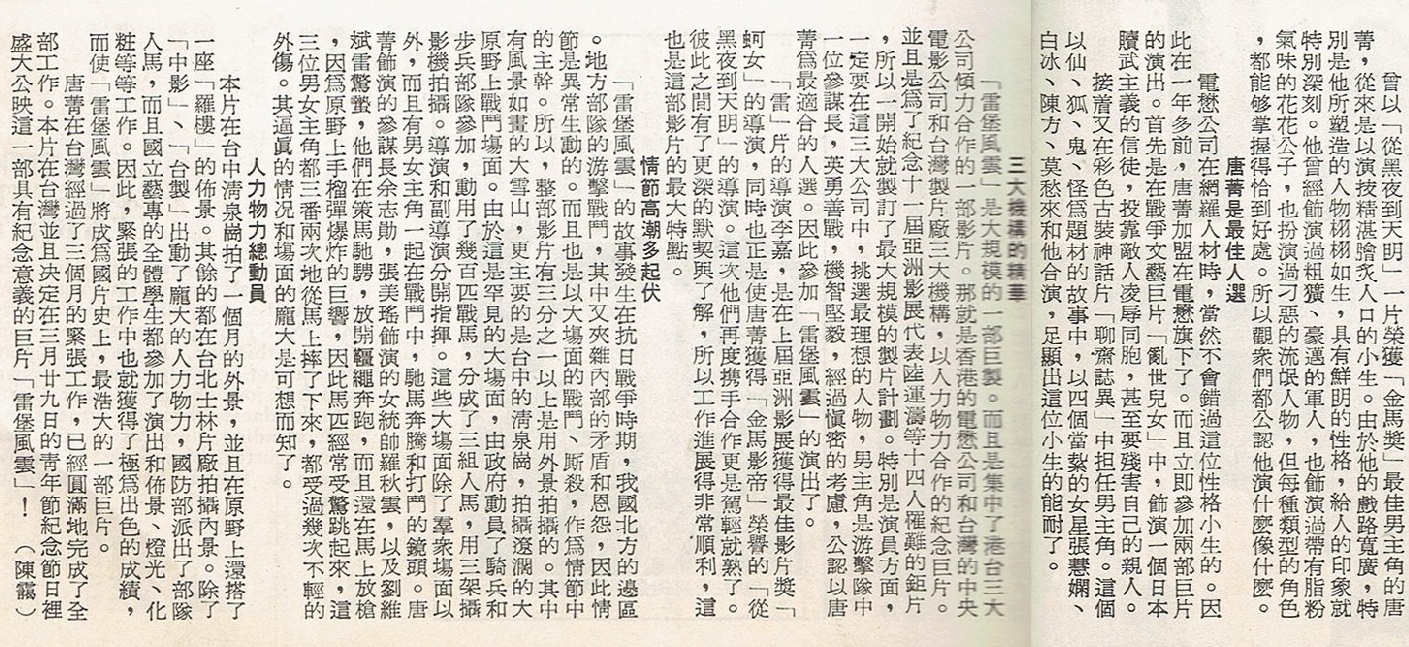 曾以「從黑夜到天明」一片榮獲「金馬奬」最佳男主角的唐
菁，從來是以演技精湛膾炙人口的小生。由於他的戲路寬廣，特
別是他所塑造的人物栩栩如生，具有鮮明的性格，給人的印象就
特別深刻。他曾經飾演過粗獷、豪邁的軍人，也飾演過帶有脂粉
氣味的花花公子，也扮演過刁惡的流氓人物，但每種類型的角色
，都能够掌握得恰到好處。所以觀衆們都公認他演什麼像什麼。
唐菁是最佳人選
電懋公司在網羅人材時，當然不會錯過這位性格小生的。因
此在一年多前，唐菁加盟在電懋旗下了。而且立即參加兩部巨片
的演出。首先是在戰爭文藝巨片「亂世兒女」中，飾演一個日本
黷武主義的信徒，投靠敵人凌辱同胞，甚至要殘害自己的親人。
接着又在彩色古裝神話片「聊齋誌異」中担任男主角。這個
以仙、狐、鬼、怪爲題材的故事中，以四個當紮的女星張慧嫻、
白冰、陳方、莫愁來和他合演，足顯出這位小生的能耐了。
三大機構的精華
「雷堡風雲」是大規模的一部巨製。而且是集中了港台三大
公司傾力合作的一部影片。那就是香港的電懋公司和台灣的中央
電影公司和台灣製片廠三大機構，以人力物力合作的紀念巨片。
並且是爲了紀念十一屆亞洲影展代表陸運濤等十四人罹難的鉅片
，所以一開始就製訂了最大規模的製片計劃。特別是演員方面，
一定要在這三大公司中，挑選最理想的人物，男主角是游擊隊中
一位參謀長，英勇善戰，機智堅毅，經過愼密的考慮，公認以唐
菁爲最適合的人選。因此參加「雷堡風雲」的演出了。
「雷」片的導演李嘉，是在上屆亞洲影展獲得最佳影片獎「
蚵女」的導演，同時也正是使唐菁獲得「金馬影帝」榮譽的「從
黑夜到天明」的導演。這次他們再度携手合作更是駕輕就熟了。
彼此之間有了更深的默契與了解，所以工作進展得非常順利，這
也是這部影片的最大特點。
情節高潮多起伏
「雷堡風雲」的故事發生在抗日戰爭時期，我國北方的邊區
。地方部隊的游擊戰鬥，其中又夾雜內部的矛盾和恩怨，因此情
節是異常生動的。而且也是以大場面的戰鬥、厮殺，作爲情節中
的主幹。所以，整部影片有三分之一以上是用外景拍攝的。其中
有風景如畫的大雪山，更主要的是台中的淸泉崗，拍攝遼濶的大
原野上戰鬥場面。由於這是罕見的大場面，由政府動員了騎兵和
步兵部隊參加，動用了幾百匹戰馬，分成了三組人馬，用三架攝
影機拍攝。導演和副導演分開指揮。這些大場面除了羣衆場面以
外，而且有男女主角一起在戰鬥中，馳馬奔騰和打鬥的鏡頭。唐
菁飾演的參謀長余志勛，張美瑤飾演的女統帥羅秋雲，以及劉維
斌雷驚蟄，他們在策馬馳騁，放開韁繩奔跑，而且還在馬上放槍
，因爲原野上手榴彈爆炸的巨響，因此馬匹經常受驚跳起來，這
三位男女主角都三番兩次地從馬上摔了下來，都受過幾次不輕的
外傷。其逼眞的情況和場面的龐大是可想而知了。
人力物力總動員
本片在台中淸泉崗拍了一個月的外景，並且在原野上還搭了
一座「羅樓」的佈景。其餘的都在台北士林片廠拍攝內景。除了
「中影」、「台製」出動了龐大的人力物力，國防部派出了部隊
人馬，而且國立藝專的全體學生都參加了演出和佈景、燈光、化
粧等等工作。因此，緊張的工作中也就獲得了極爲出色的成績，
而使「雷堡風雲」將成爲國片史上，最浩大的一部巨片。
唐菁在台灣經過了三個月的緊張工作，已經圓滿地完成了全
部工作。本片在台灣並且决定在三月廿九日的靑年節紀念節日裡
盛大公映這一部具有紀念意義的巨片「雷堡風雲」！（陳靄）